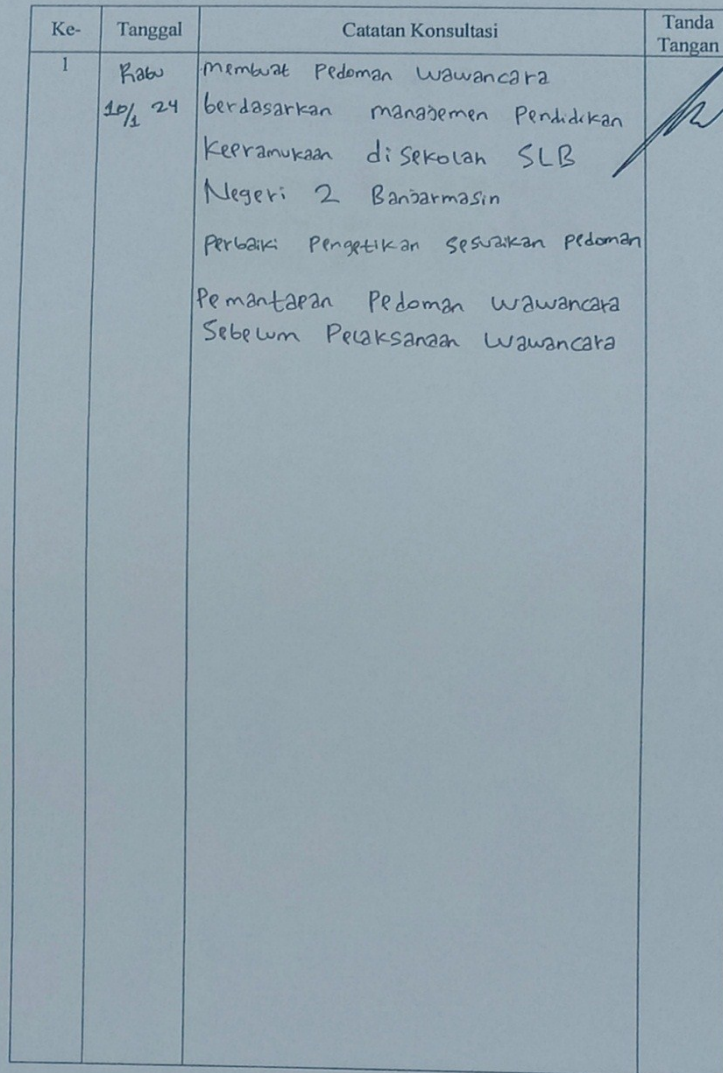 Ke- Tanggal Catatan Konsultasi Tanda Tangan
1 Rabu membuat Pedoman wawancara
10/1 24 berdasarkan manajemen Pendidikan
Kepramukaan di sekolah SLB
Negeri 2 Banjarmasin
Perbaiki Pengetikan sesuaikan pedoman
Pemantapan Pedoman wawancara
Sebelum Pelaksanaan wawancara